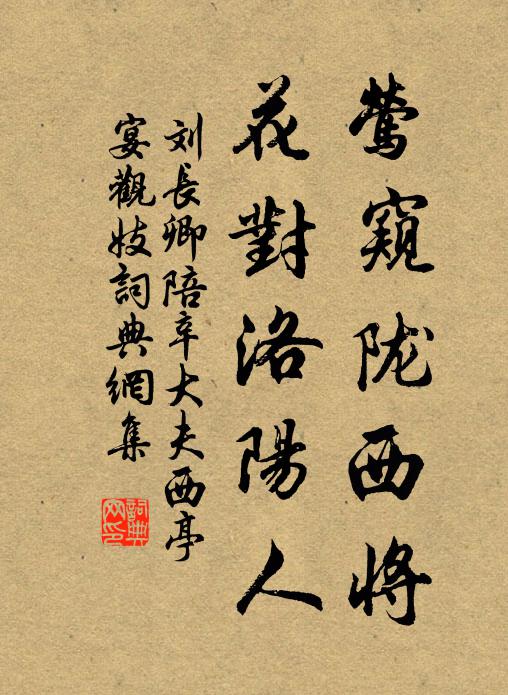 鶯窺陇西將
花對洛陽人
刘長卿陪辛大夫西亭
宴觀妓詞典網集
詞典网印